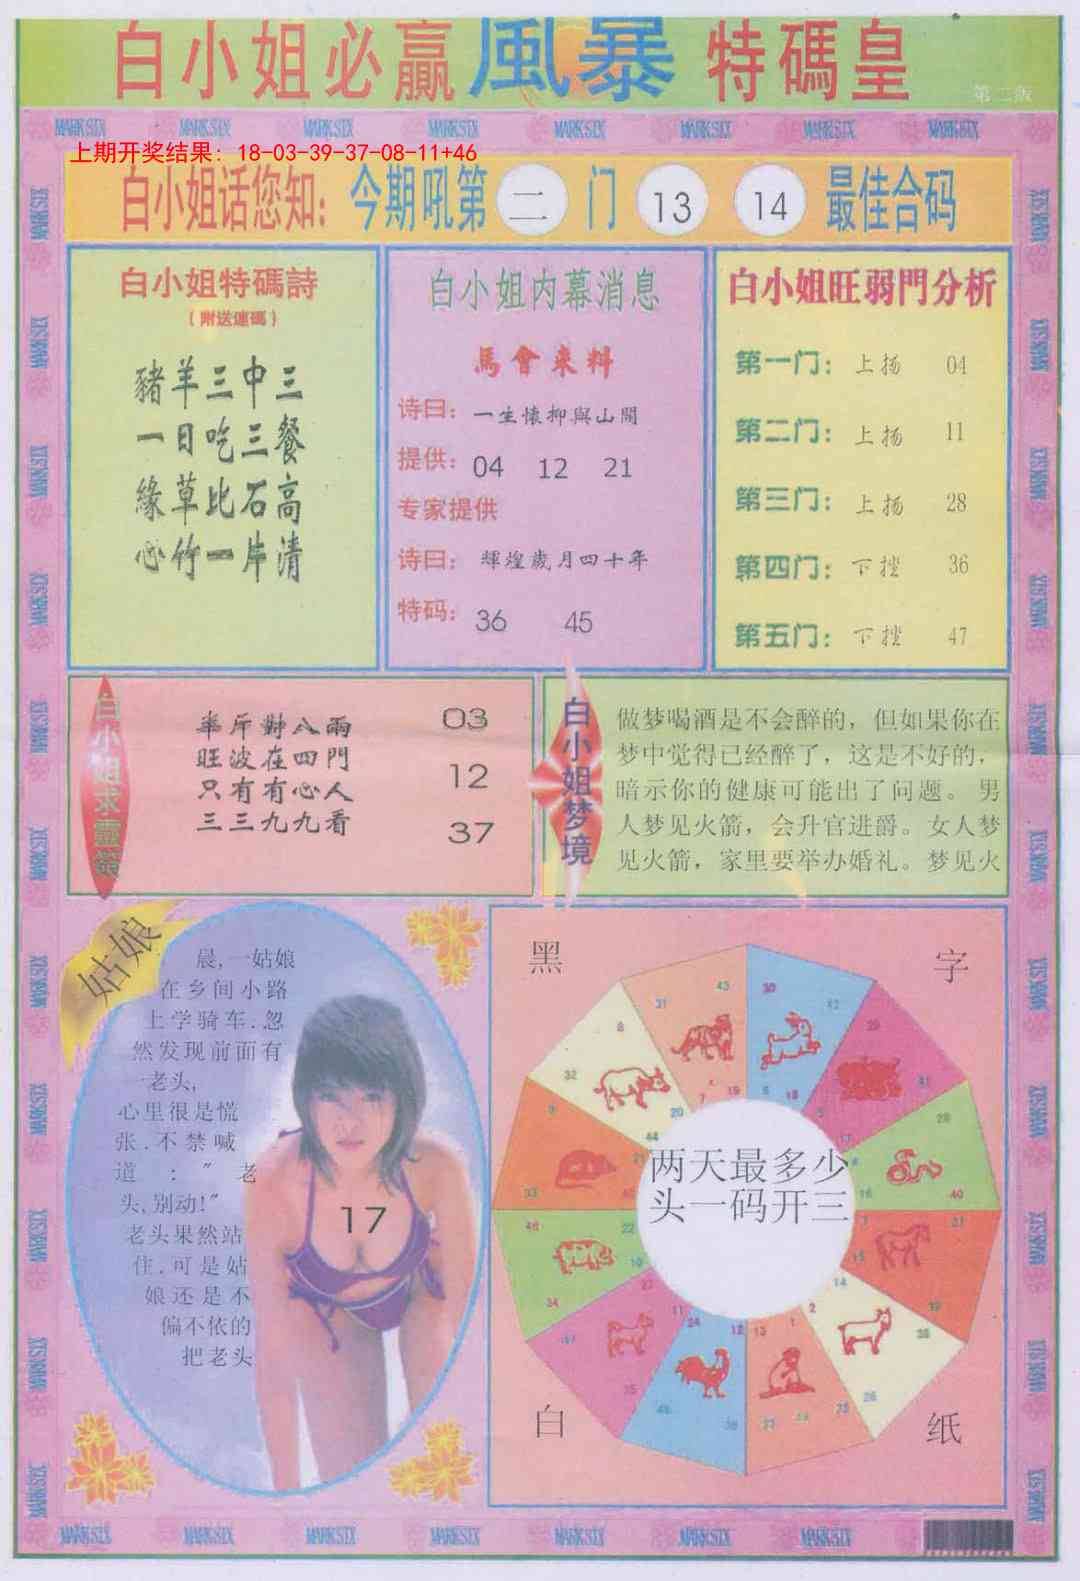 白小姐必贏風暴特碼皇
第二版
MARK SIX MARK SIX MARK SIX MARK SIX MARK SIX MARK SIX MARK SIX MARK SIX
上期开奖结果: 18-03-39-37-08-11+46
白小姐话您知: 今期吼第 二 门 13 14 最佳合码
白小姐特碼詩
(附送連碼)
豬羊三中三
一日吃三餐
緣草比石高
心竹一片清
白小姐内幕消息
馬會来料
诗曰: 一生懷抑與山開
提供: 04 12 21
专家提供
诗曰: 輝煌歲月四十年
特码: 36 45
白小姐旺弱門分析
第一门: 上扬 04
第二门: 上扬 11
第三门: 上扬 28
第四门: 下挫 36
第五门: 下挫 47
白小姐求靈簽
半斤對八兩
旺波在四門
只有有心人
三三九九看
03
12
37
白小姐梦境
做梦喝酒是不会醉的，但如果你在
梦中觉得已经醉了，这是不好的，
暗示你的健康可能出了问题。男
人梦见火箭，会升官进爵。女人梦
见火箭，家里要举办婚礼。梦见火
姑娘
晨,一姑娘
在乡间小路
上学骑车.忽
然发现前面有
一老头,
心里很是慌
张.不禁喊
道:"老
头,别动!"
老头果然站
住.可是姑
娘还是不
偏不依的
把老头
17
黑
字
两天最多少
头一码开三
白
纸
MARK SIX MARK SIX MARK SIX MARK SIX MARK SIX MARK SIX MARK SIX MARK SIX